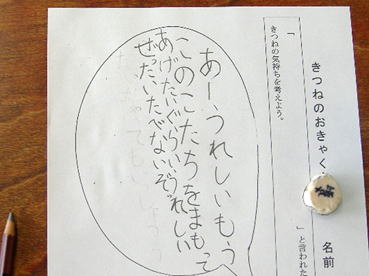 きつねのおきゃく
名前
「
」と言われた
きつねの気持ちを考えよう。
あーうれしいもう
このこたちをまもって
あげたいぐらいうれしい
ぜったいたべないぞ